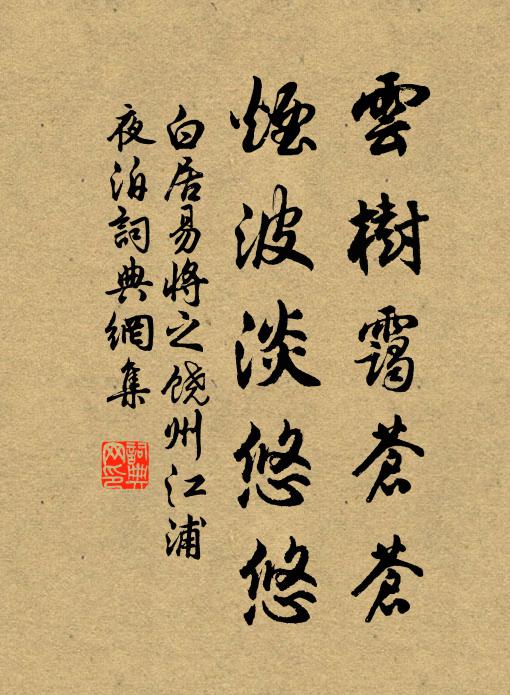 雲樹靄蒼蒼
煙波淡悠悠
白居易將之饒州江浦
夜泊詞典網集
詞典
网印